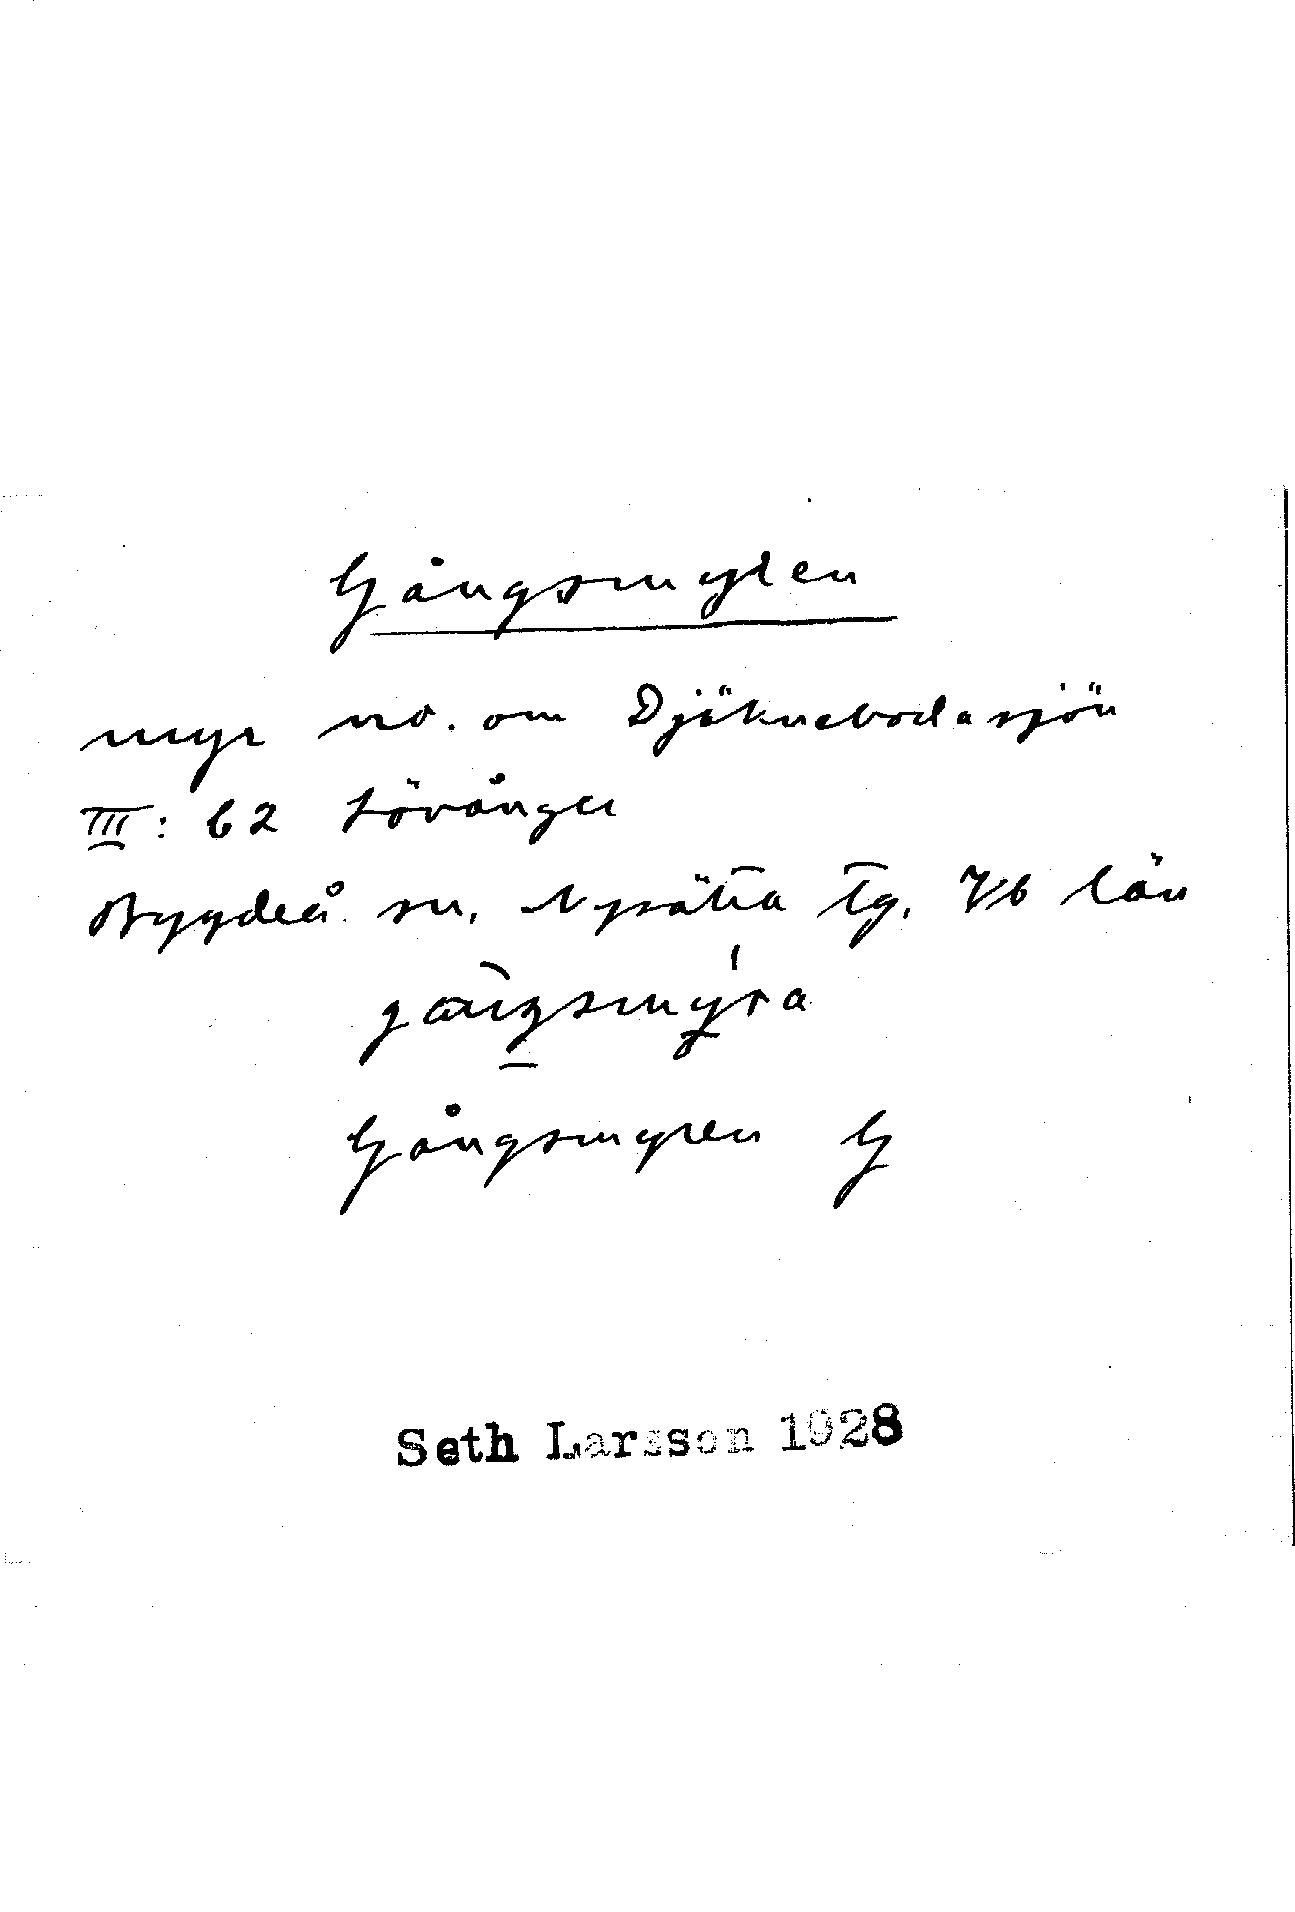 Gångsmyren
myr nö. om Djäknebodasjön
III: 62 Lövånger
Bygdeå sn, Nysätra tg, Vb län
gåŋsmyra
Gångsmyren G
Seth Larsson 1928